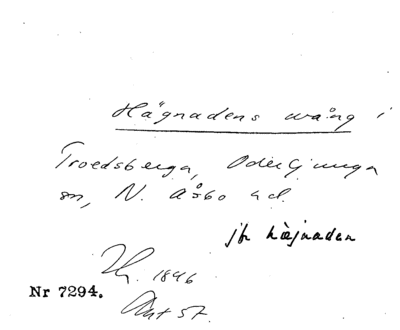 Hägnadens wång i
Troedsberga, Oderljunga
sn, N. Åsbo hd.
jfr hägnaden
1846
Nr 7294.
Akt 57.